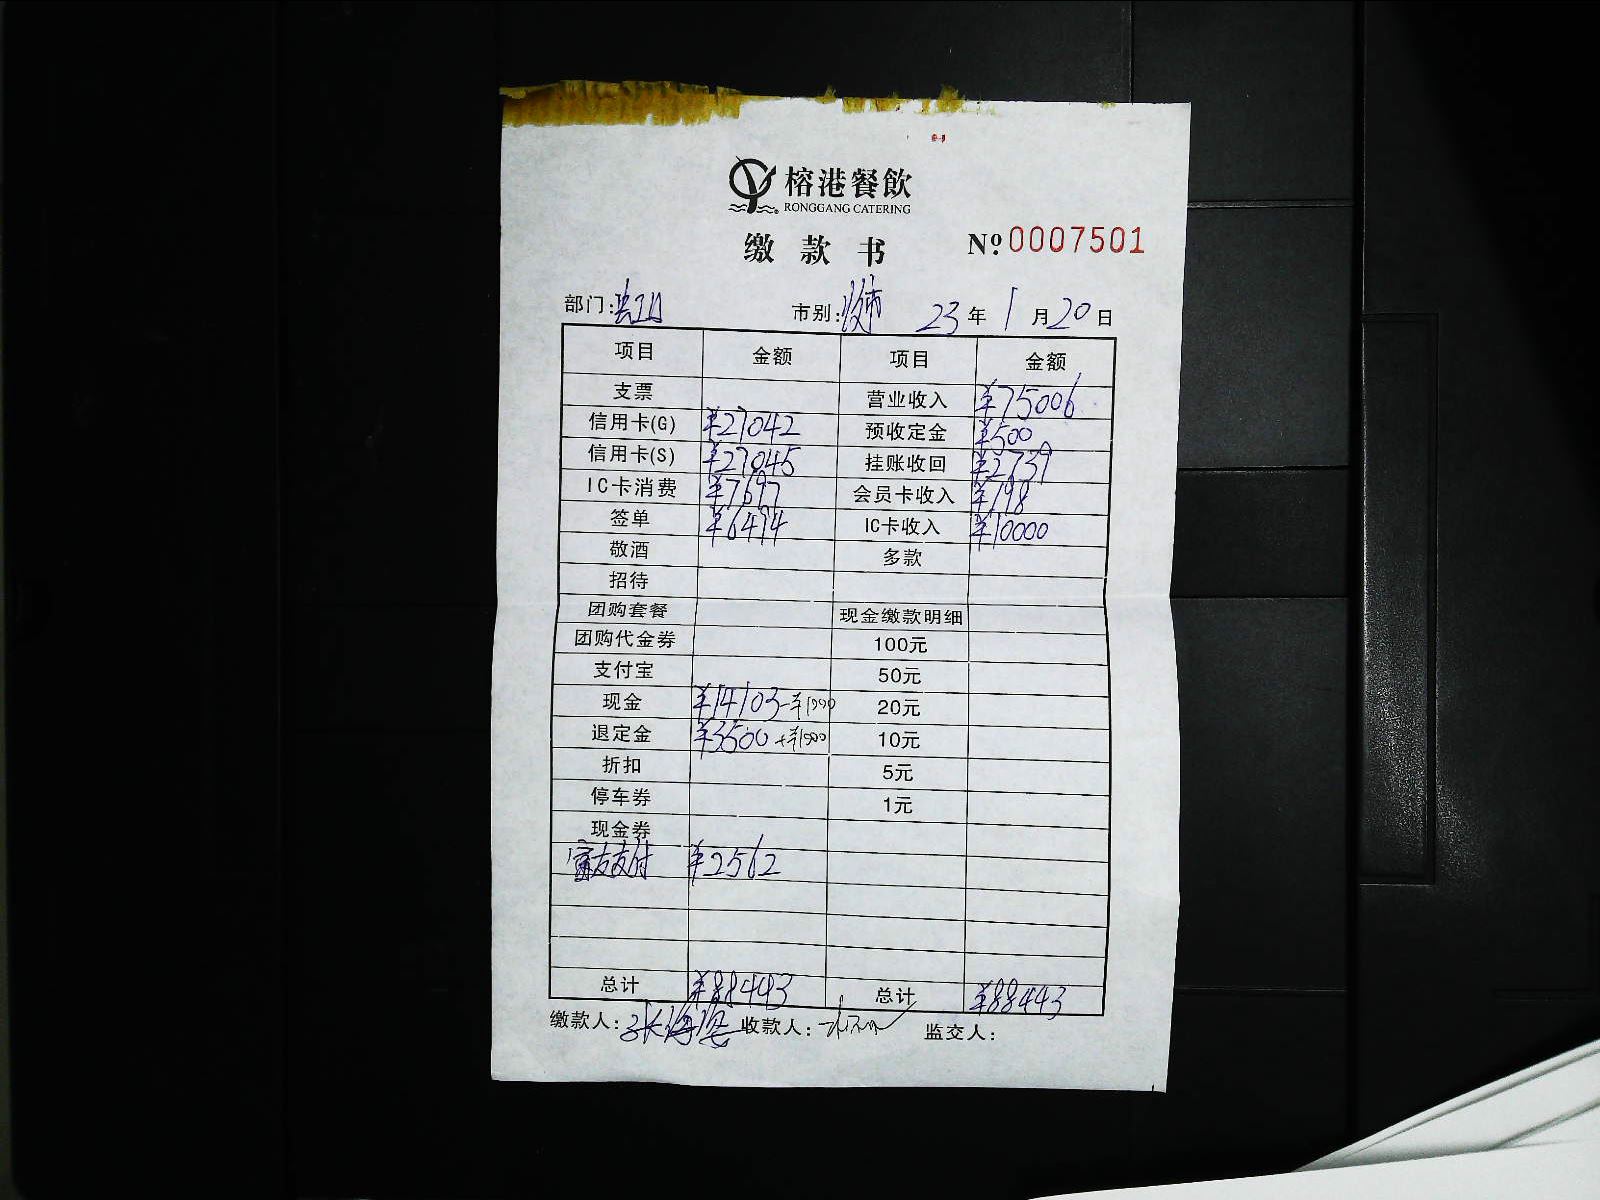 榕港餐飲
RONGGANG CATERING
缴款书 Nº 0007501
部门: 市别: 23年1月20日
项目 金额 项目 金额
支票 营业收入 ¥75006
信用卡(G) ¥27042 预收定金 ¥500
信用卡(S) ¥27045 挂账收回 ¥2739
IC卡消费 ¥7697 会员卡收入 ¥198
签单 ¥6494 IC卡收入 ¥10000
敬酒 多款
招待
团购套餐 现金缴款明细
团购代金券 100元
支付宝 50元
现金 ¥14103-¥1000 20元
退定金 ¥3500+¥1000 10元
折扣 5元
停车券 1元
现金券
富友支付 ¥2562
总计 ¥88443 总计 ¥88443
缴款人: 收款人: 监交人: